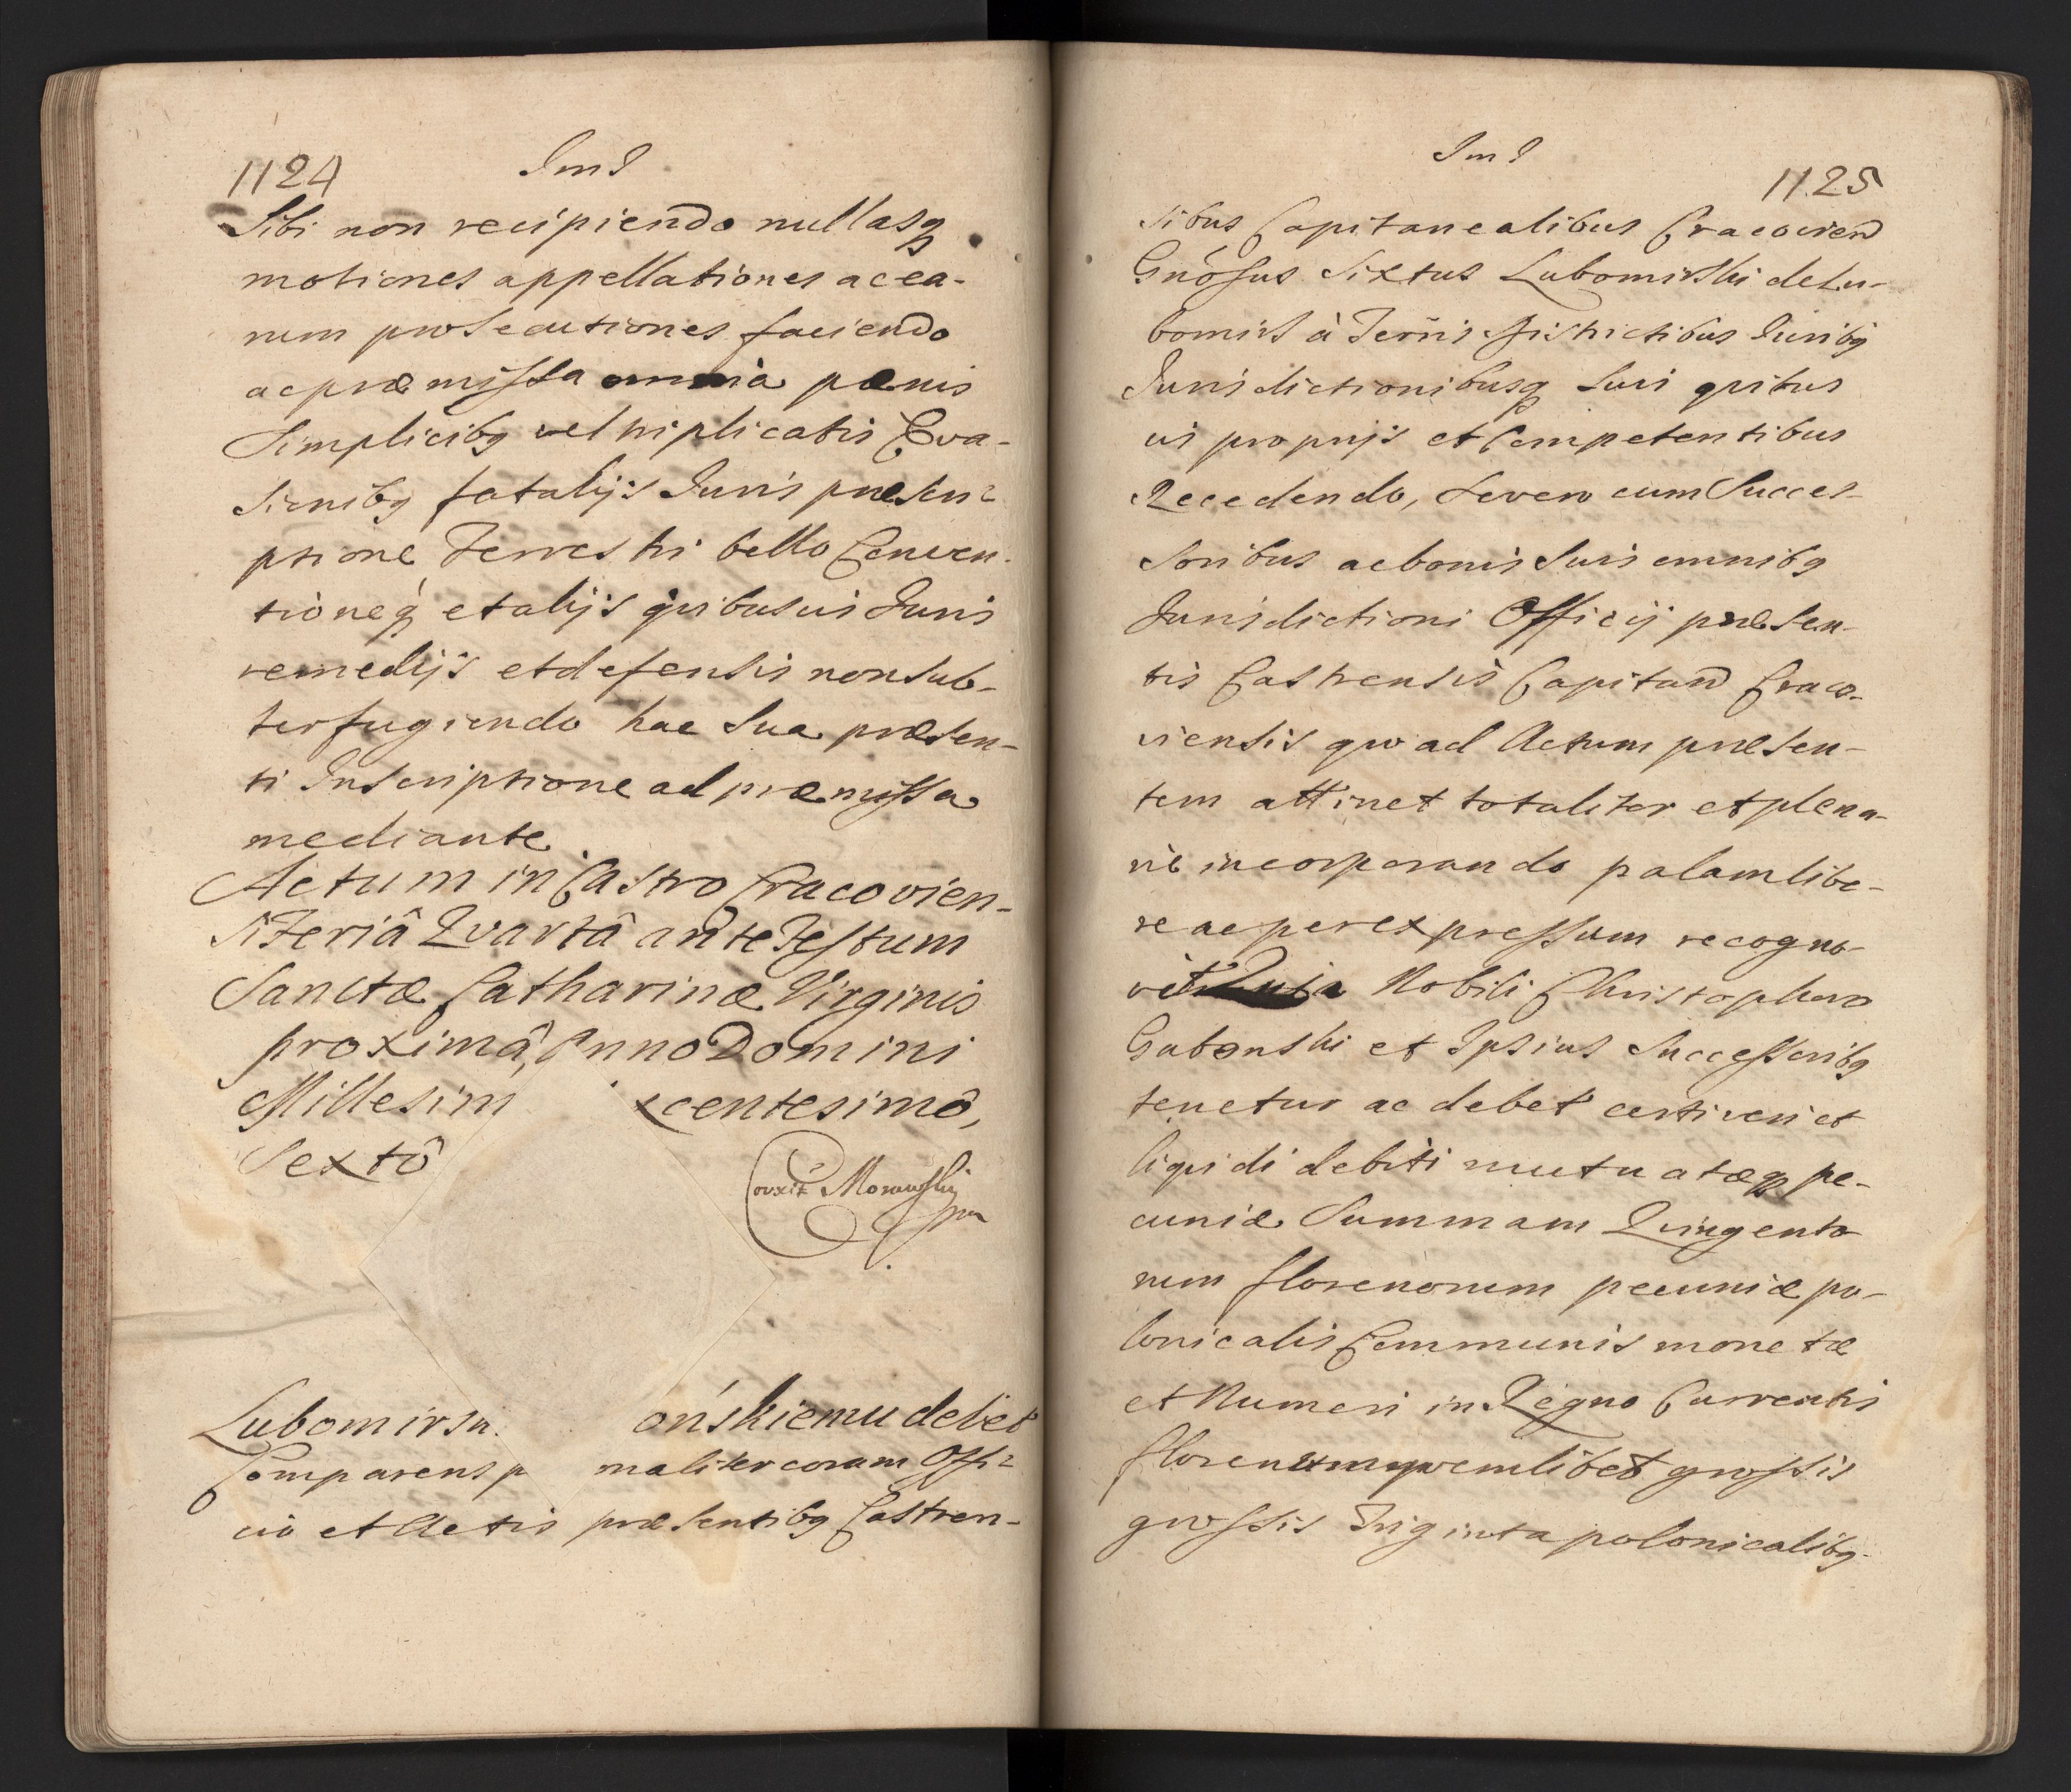 1124
Sibi non recipiendo nullasq
motiones appellationes ac ea-
rum prosecutiones faciendo
ac præmissa omnia pænis
Simplicibq vel triplicatis Eva-
sionibq fatalijs Juris præscri-
ptione Terrestri bello Conven-
tioneq et alijs quibusuis Juris
remedijs et defensis non sub-
terfugiendo hac sua præsen-
ti Inscriptione ad præmissa
mediante
Actum in Castro Cracovien-
si Feriâ Qvartâ ante Festum
Sanctæ Catharinæ Virginis
proximâ, Anno Domini
Millesim xcentesimô,
Sextô
Lubomirsk ońskiemu debet
Comparens p naliter coram Offi-
cio et Actis præsentibq Castren-
1125
sibus Capitanealibus Cracovien
Gnosus Sixtus Lubomirski de Lu-
bomirs à Terris Districtibus Juribq
Jurisdictionibusq suis quibus
uis proprijs et Competentibus
Recedendo, se vero cum Succes-
soribus ac bonis suis omnibq
Jurisdictioni Officij præsen-
tis Castrensis Capitan Craco-
viensis quo ad Actum præsen-
tem attinet totaliter et plena-
rie incorporando palam libe-
re ac per expressum recogno-
vit Quia Nobili Christophero
Gabonski et Ipsius Successoribq
tenetur ac debet certi veri et
liquidi debiti mutuatæq pe-
cuniæ Summam Quingento
rum florenorum pecuniæ po-
lonicalis Communis monetæ
et Numeri in Regno Currentis
florenum quemlibet grossis
grossis Triginta polonicalibq